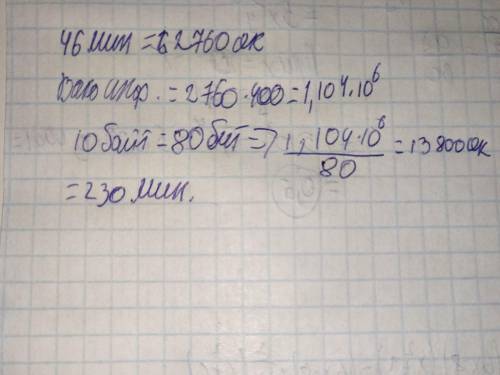 46 мин = 2760 сек
Всего инф. = 2760·400 = 1,104·10⁶
10 байт = 80 бит ⇒ 1,104·10⁶ / 80 = 13800 сек
= 230 мин.